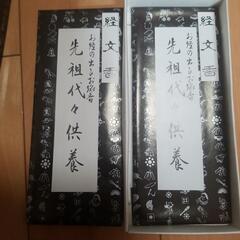 経文香
お経の出るお線香
先祖代々供養
経文香
お経の出るお線香
先祖代々供養